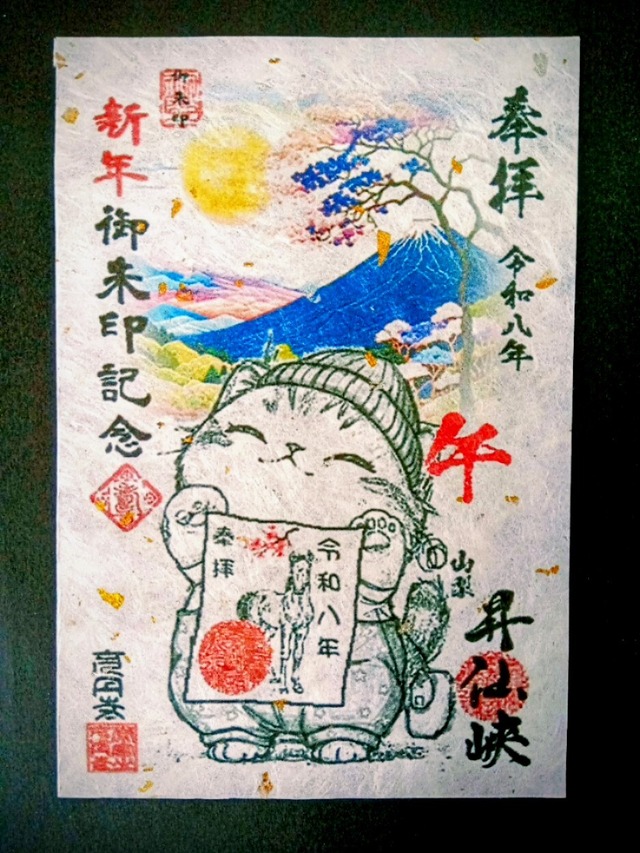 奉拝
令和八年
午
山梨
昇仙峡
令和八年
奉拝
御朱印
新年
御朱印記念